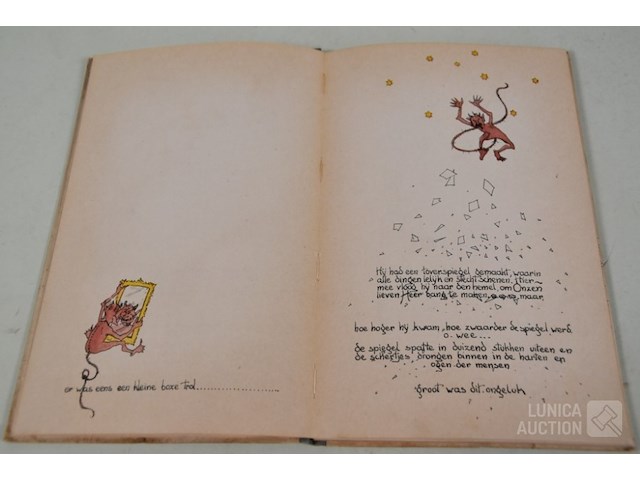 er was eens een kleine boze trol......................
Hij had een toverspiegel gemaakt, waarin
alle dingen lelijk en slecht schenen. Hier-
mee vloog hij naar den hemel, om Onzen
lieven Heer bang te maken, maar,
hoe hoger hij kwam, hoe zwaarder de spiegel werd
o. wee...
de spiegel spatte in duizend stukken uiteen en
de scherfjes, drongen binnen in de harten en
ogen der mensen
groot was dit ongeluk
LUNICA
AUCTION